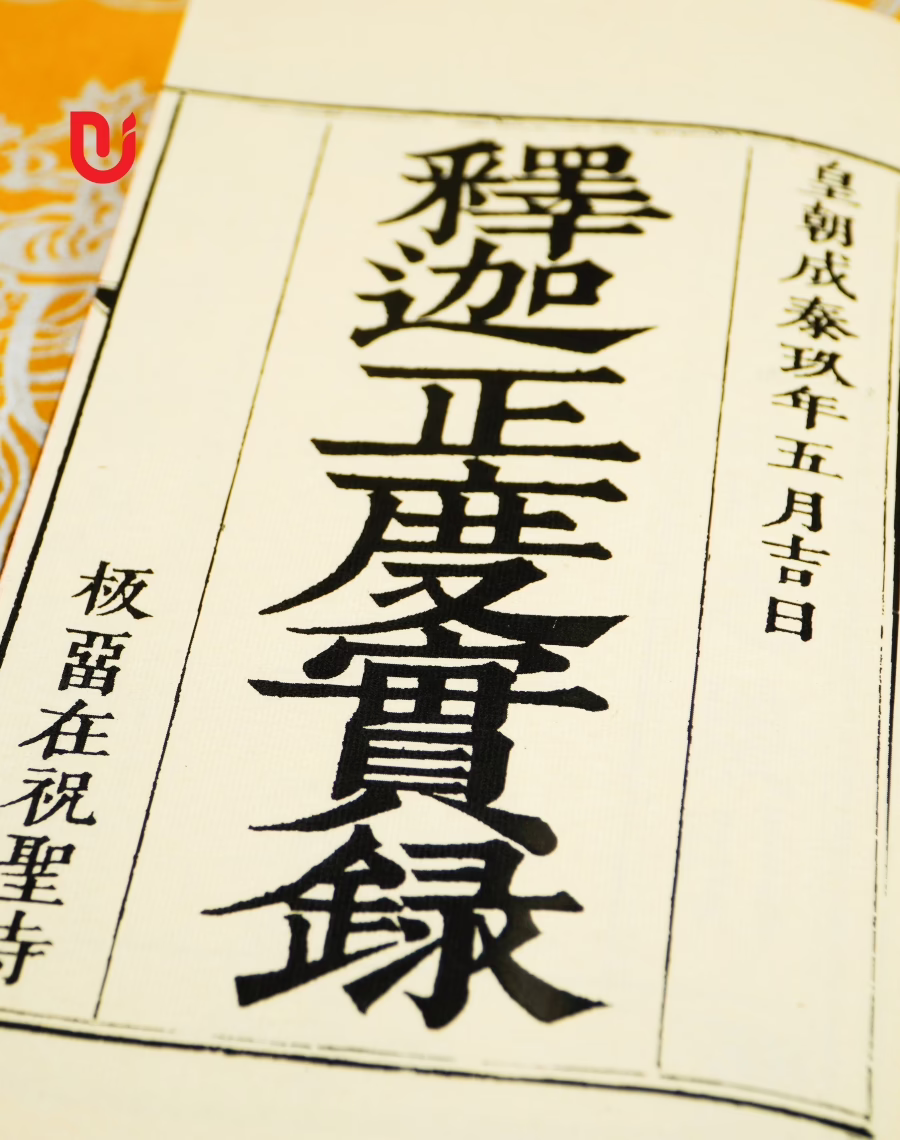 皇朝成泰玖年五月吉日
釋迦正度實錄
板留在祝聖寺